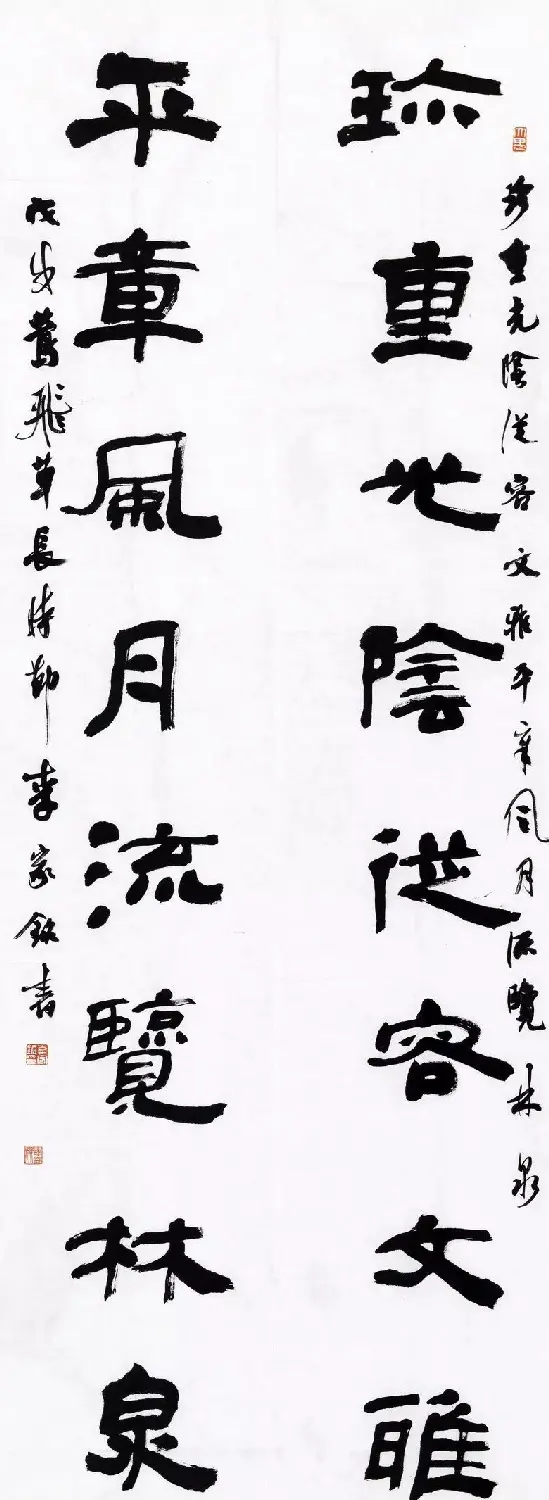 珍重光陰從容文雅平章風月流覽林泉
珎重光陰從容文雅
平章風月流覽林泉
戊戌鶯飛草長時節李家書